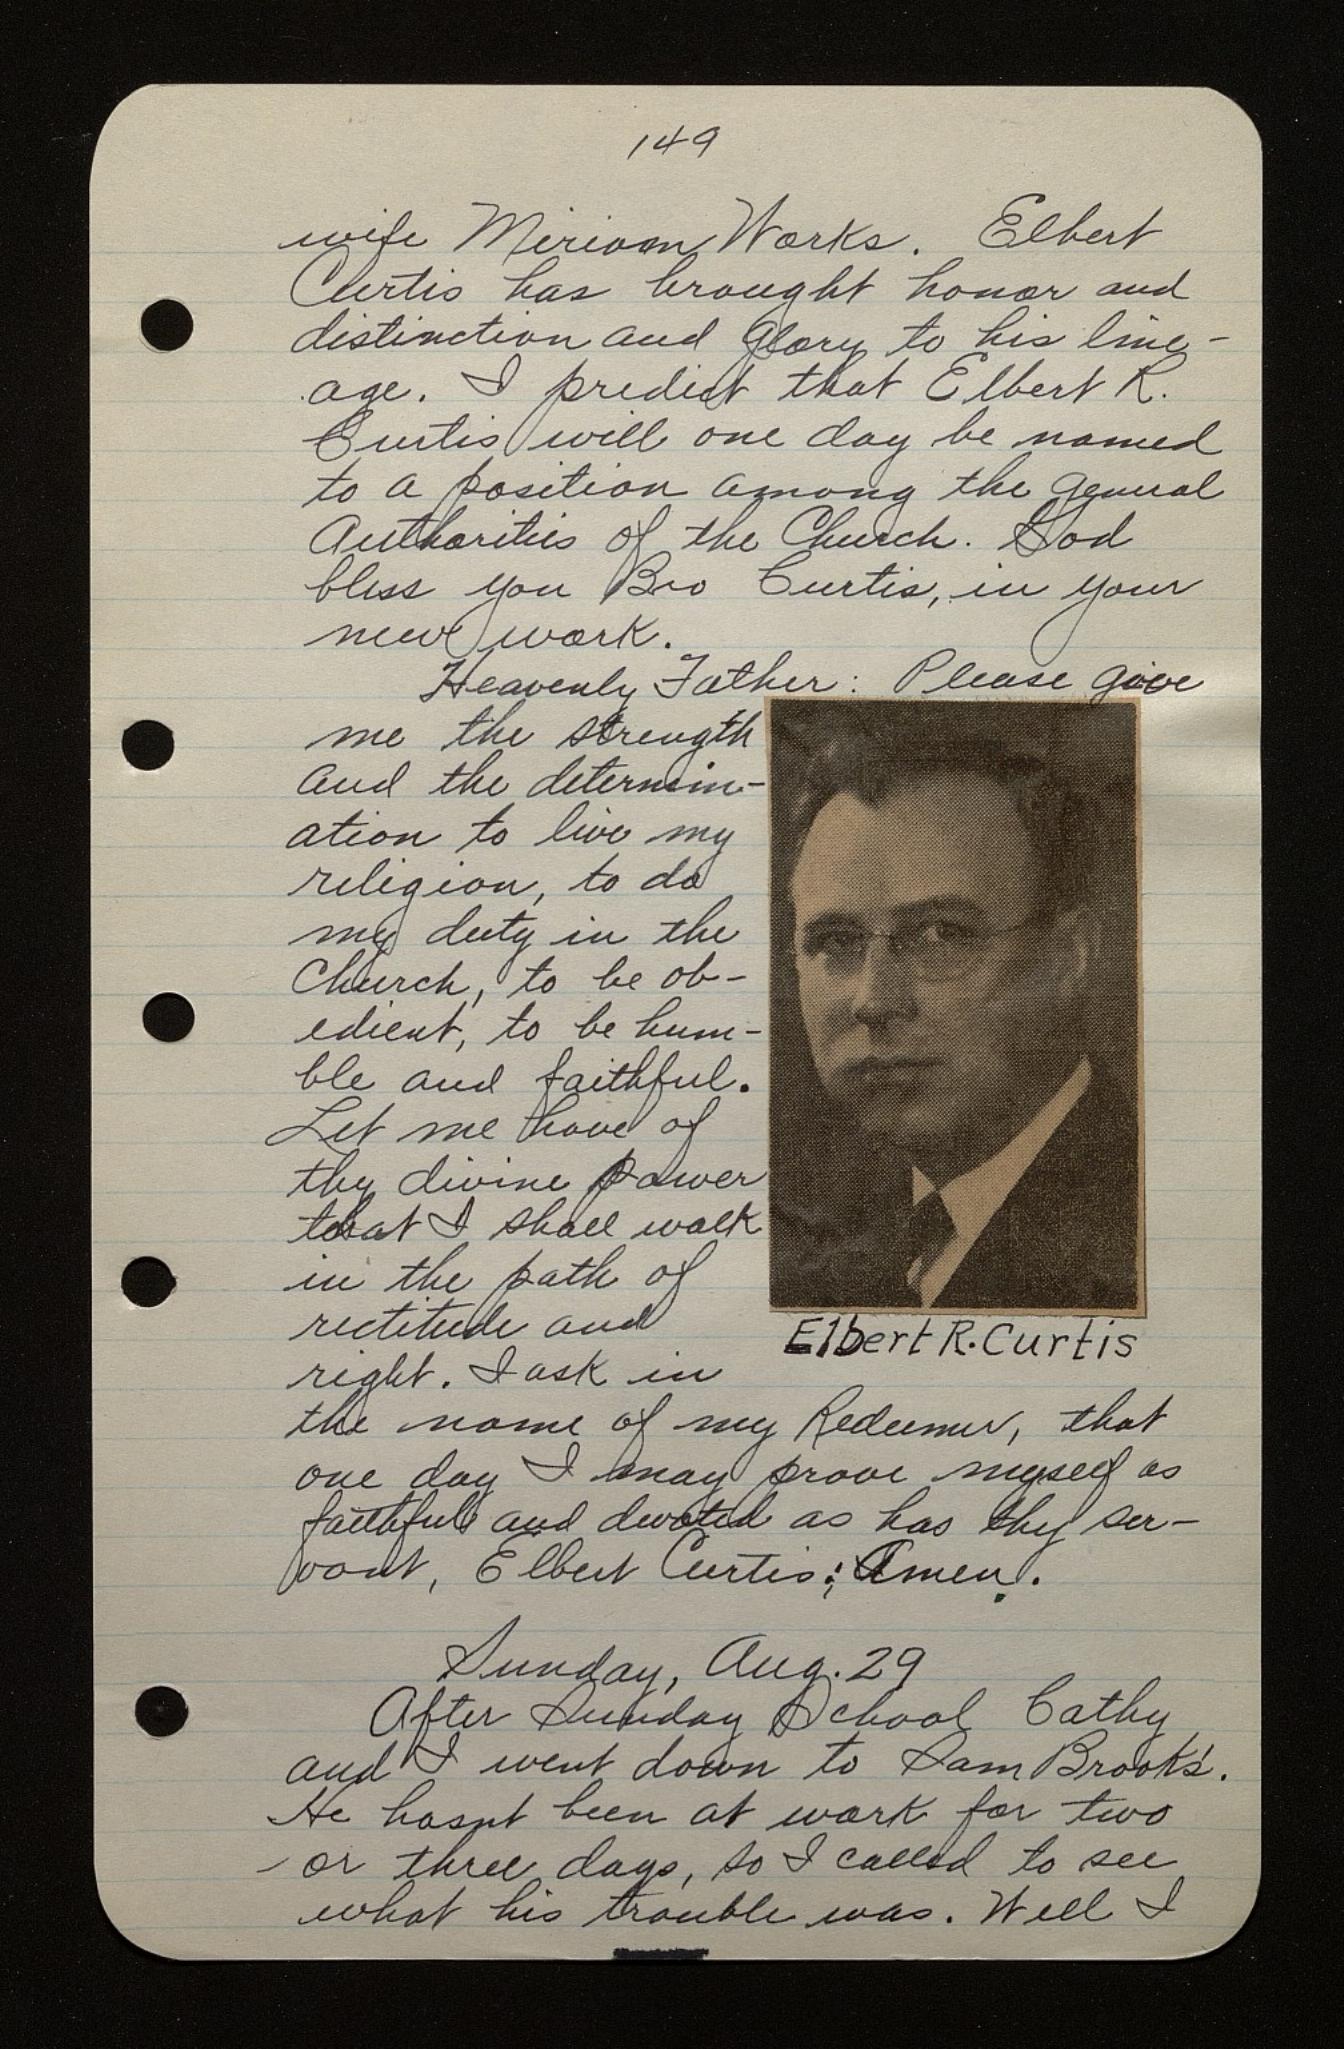 149
wife Miriam Works. Elbert
Curtis has brought honor and
distinction and glory to his line-
age. I predict that Elbert R.
Curtis will one day be named
to a position among the general
Authorities of the Church. God
bless you Bro Curtis, in your
new work.
Heavenly Father: Please give
me the strength
and the determin-
ation to live my
religion, to do
my duty in the
Church, to be ob-
edient, to be hum-
ble and faithful.
Let me have of
thy divine power
that I shall walk
in the path of
rectitude and
right. I ask in
Elbert R. Curtis
the name of my Redeemer, that
one day I may prove myself as
faithful and devoted as has thy ser-
vant, Elbert Curtis; Amen.
Sunday, Aug. 29
After Sunday School Cathy
and I went down to Sam Brooks'.
He hasnt been at work for two
or three days, so I called to see
what his trouble was. Well I